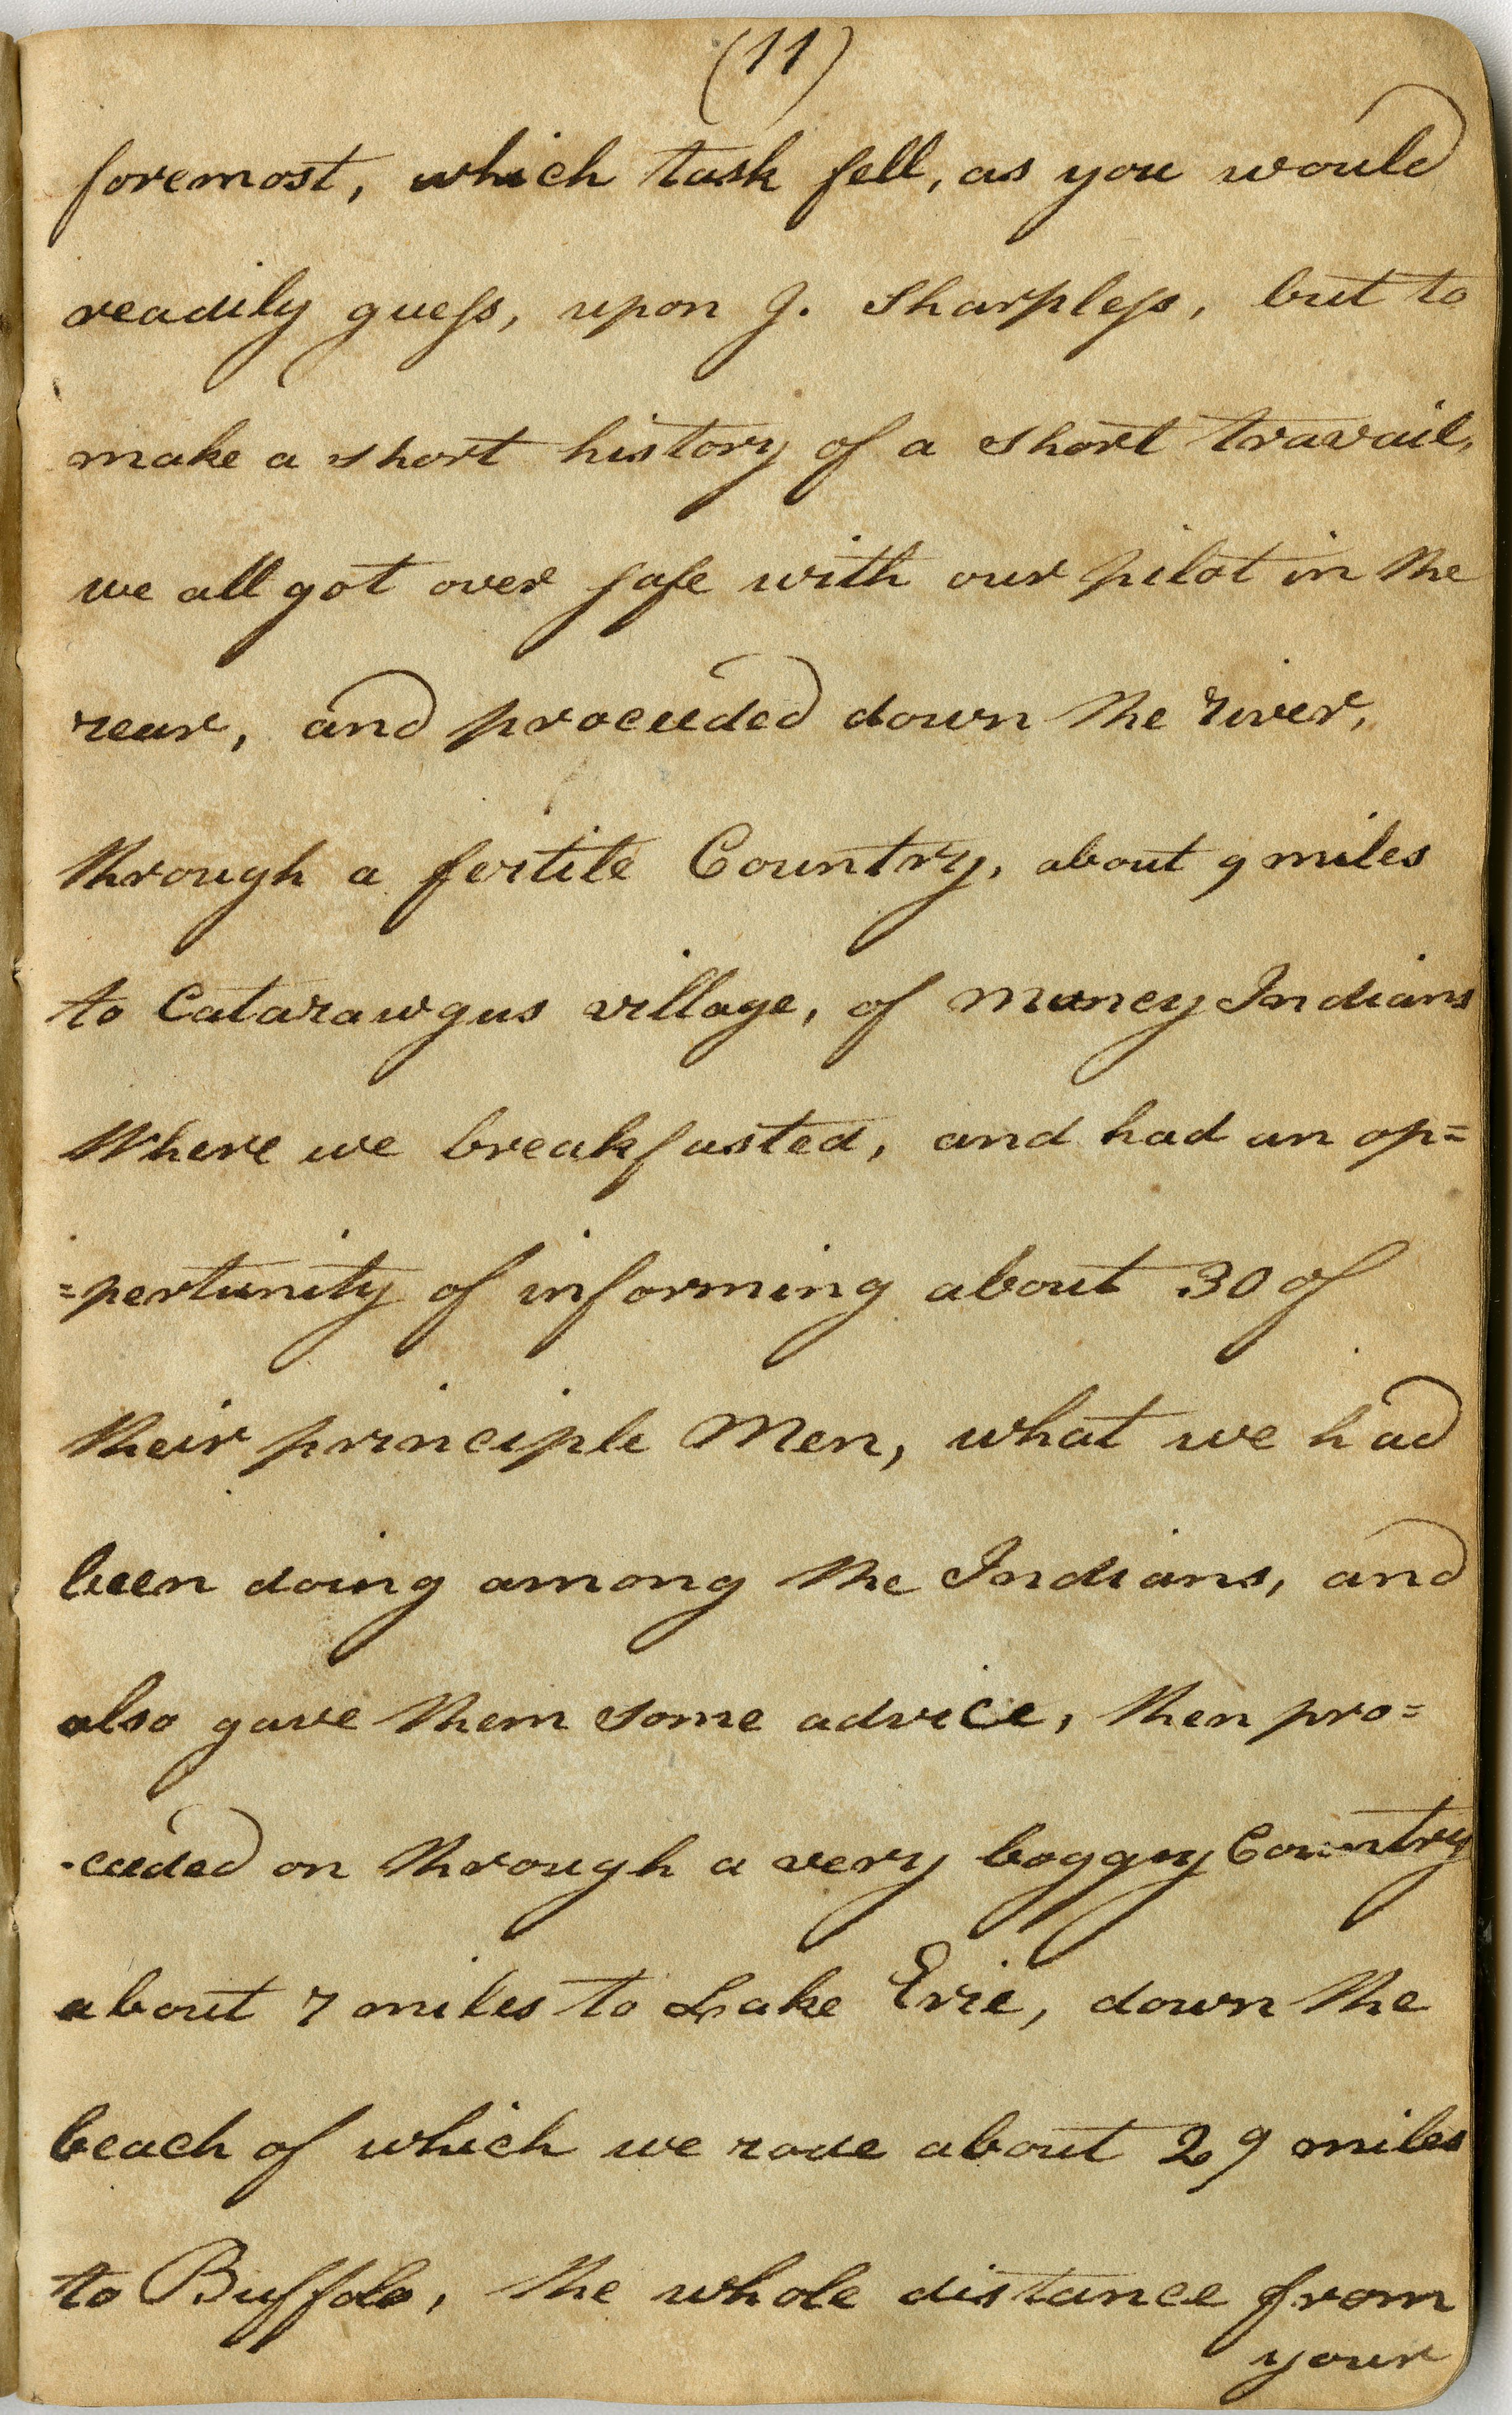 (11)
foremost, which task fell, as you would
readily guess, upon J. Sharpless, but to
make a short history of a short travail,
we all got over safe with our pilot in the
rear, and proceeded down the river,
through a fertile Country, about 9 miles
to Catarawgus village, of Muncy Indians
Where we breakfasted, and had an op=
=pertunity of informing about 30 of
their principle Men, what we had
been doing among the Indians, and
also gave them some advice, then pro=
-ceeded on through a very boggy Country
about 7 miles to Lake Erie, down the
beach of which we rode about 29 miles
to Buffalo, the whole distance from
your